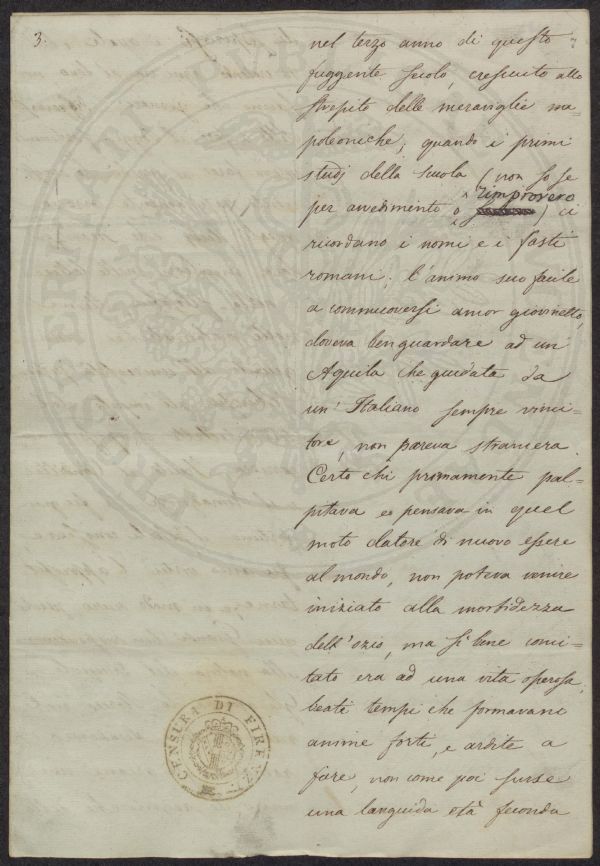 3.
nel terzo anno di questo
fuggente secolo, cresciuto allo
strepito delle meraviglie na=
poleoniche; quando i primi
studj della scuola (non so se
rimprovero
per avvedimento o ) ci
ricordano i nomi e i fasti
romani; l'animo suo facile
a commuoversi amor giovinello,
doveva ben guardare ad un'
Aquila che guidata da
un' Italiano sempre vinci=
tore, non pareva straniera.
Certo chi primamente pal=
pitava e pensava in quel
moto datore di nuovo essere
al mondo, non poteva venire
iniziato alla morbidezza
dell'ozio, ma si bene conci=
tato era ad una vita operosa,
beati tempi che formavano
anime forti, e ardite a
fare, non come poi surse
una languida età feconda
CENSURA DI FIRENZE